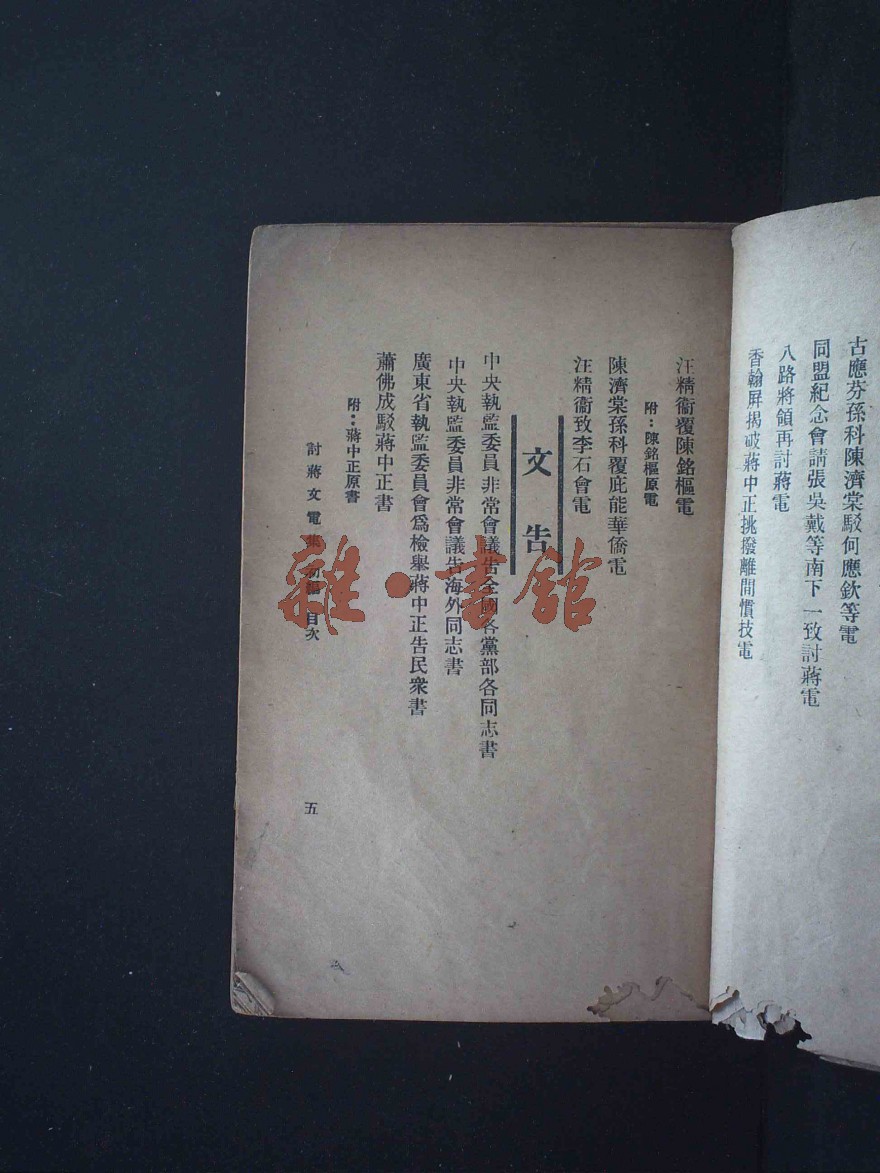 古應芬孫科陳濟棠駁何應欽等電
同盟紀念會請張吳戴等南下一致討蔣電
八路將領再討蔣電
香翰屏揭破蔣中正挑撥離間慣技電
汪精衞覆陳銘樞電
附：陳銘樞原電
陳濟棠孫科覆庇能華僑電
汪精衞致李石曾電
文告
中央執監委員非常會議告全國各黨部各同志書
中央執監委員非常會議告海外同志書
廣東省執監委員會爲檢舉蔣中正告民衆書
蕭佛成駁蔣中正書
附：蔣中正原書
討蔣文電集初編目次
五
雜·書館